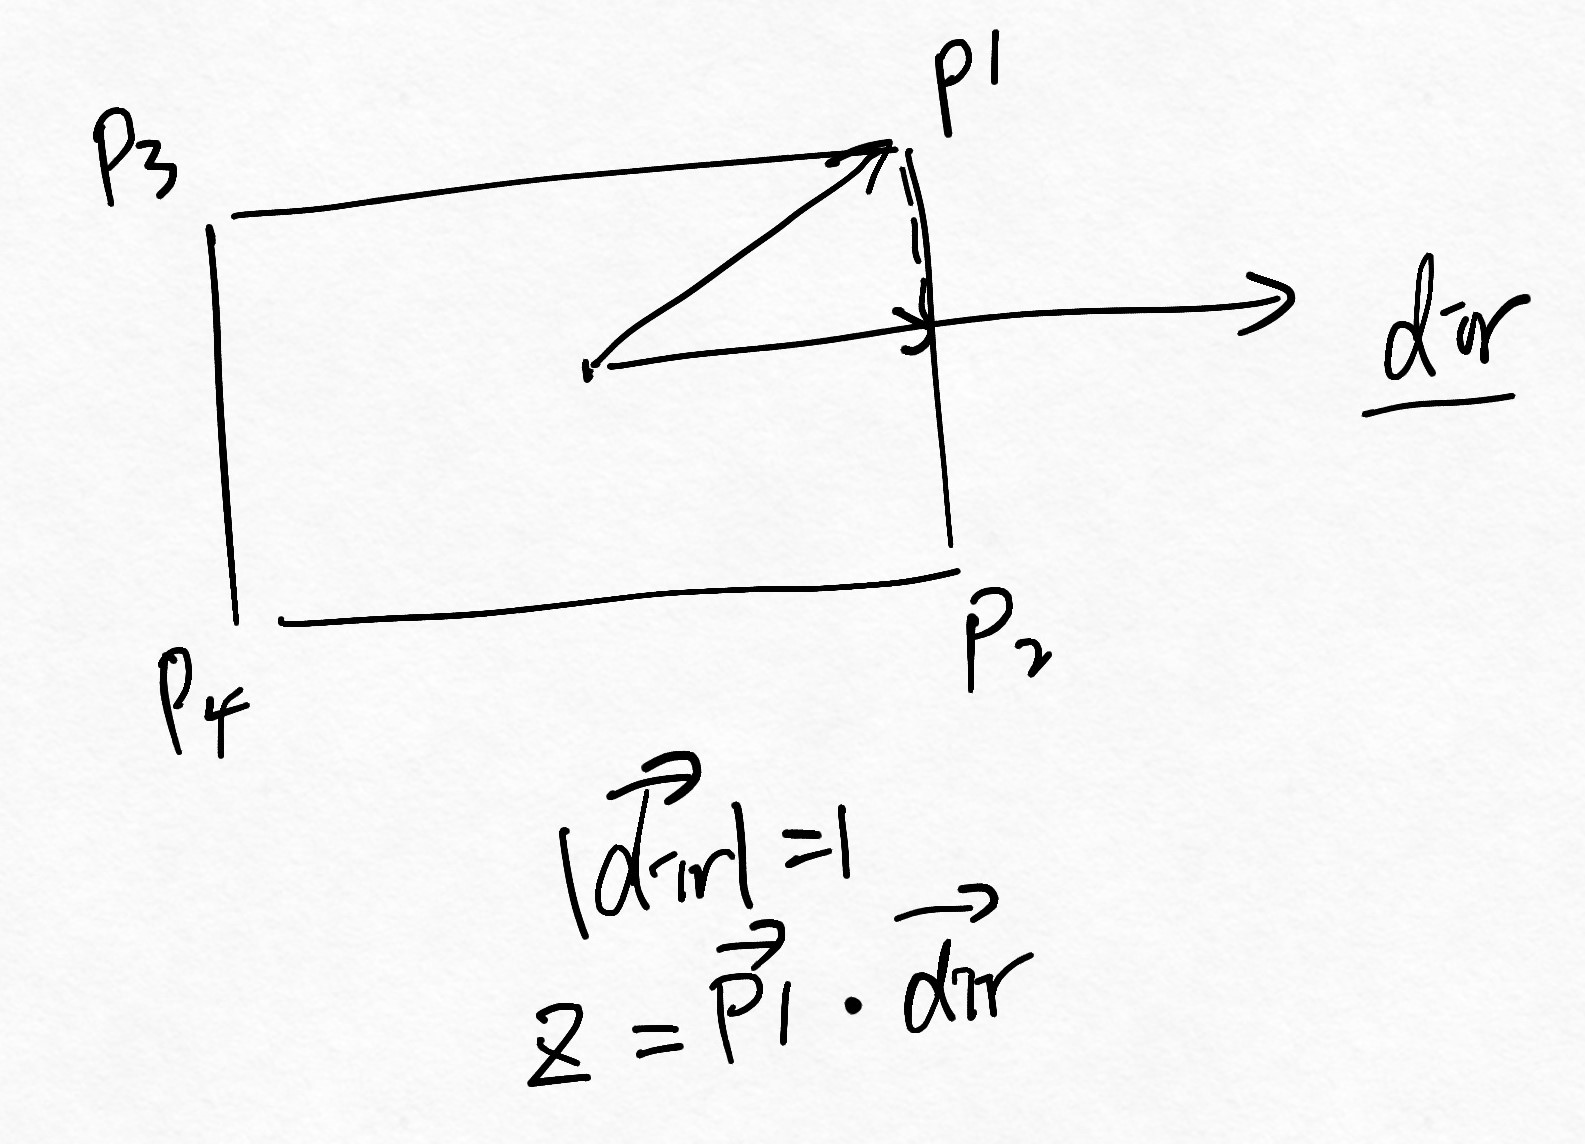 P1
P3
dir
P2
P4
|dir| = 1
z = P1 · dir